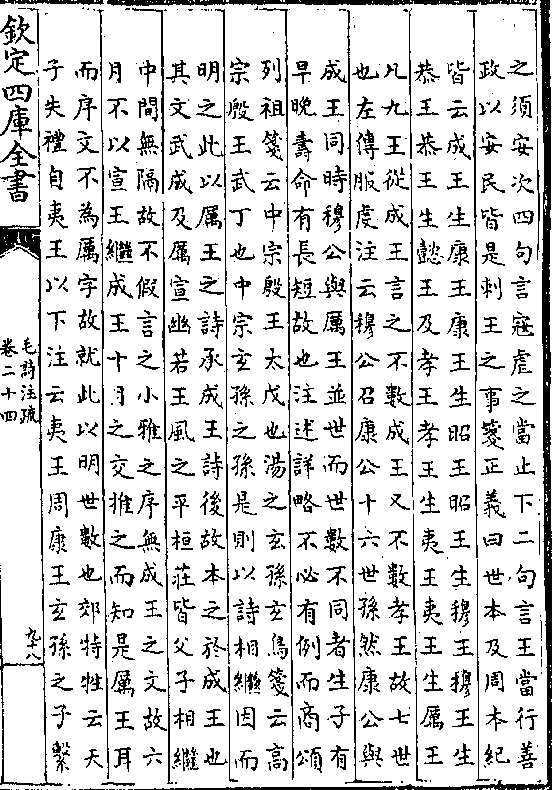 之須安次四句言寇虐之當止下二句言王當行善
政以安民皆是刺王之事箋正義曰世本及周本紀
皆云成王生康王康王生昭王昭王生穆王穆王生
恭王恭王生懿王及孝王孝王生夷王夷王生厲王
凡九王從成王言之不數成王又不數孝王故七世
也左傳服虔注云穆公召康公十六世孫然康公與
成王同時穆公與厲王並世而世數不同者生子有
早晚壽命有長短故也注述詳略不必有例而商頌
列祖箋云中宗殷王太戊也湯之玄孫玄鳥箋云高
宗殷王武丁也中宗玄孫之孫是則以詩相繼因而
明之此以厲王之詩承成王詩後故本之於成王也
其文武成及厲宣幽若王風之平桓莊皆父子相繼
中間無隔故不假言之小雅之序無成王之文故六
月不以宣王繼成王十月之交推之而知是厲王耳
而序文不為厲字故就此以明世數也郊特牲云天
子失禮自夷王以下注云夷王周康王玄孫之子繫
欽定四庫全書
毛詩注疏
卷二十四
九十八